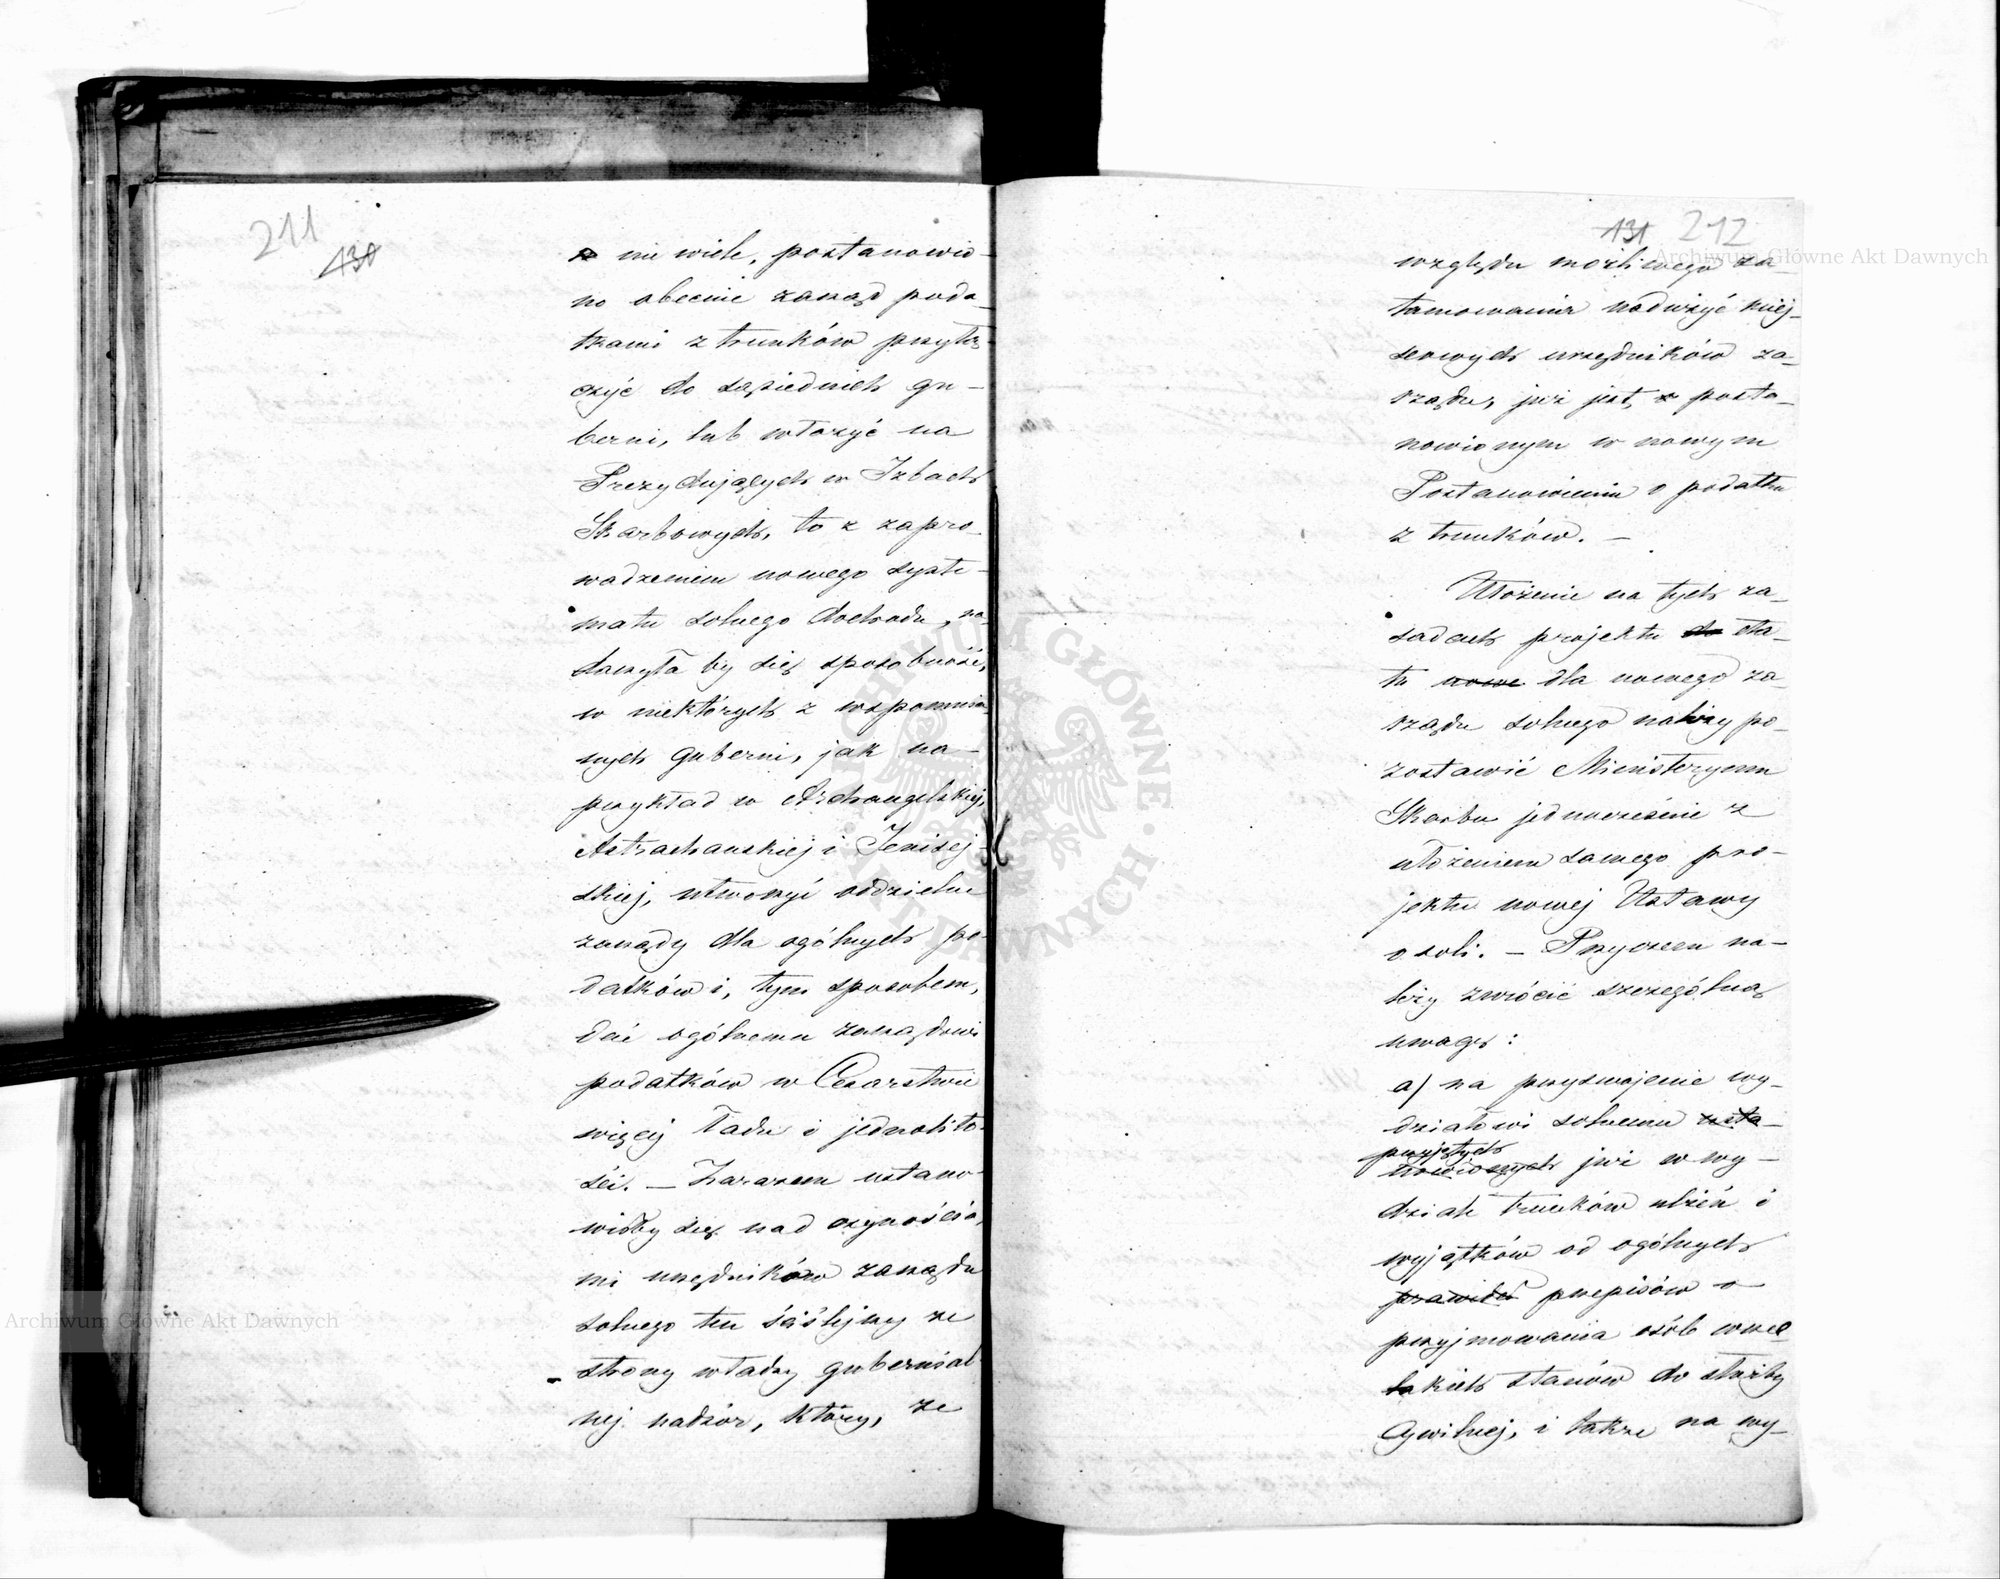 211
131
nie wiele, postanowio-
no obecnie zarząd poda-
tkami z trunków przyłą-
czyć do sąsiednich gu-
berni, lub włożyć na
Prezydujących w Izbach
Skarbowych, to z zapro-
wadzeniem nowego syste-
matu solnego dochodu, na-
darzyła by się sposobność,
w niektórych z wspomnia-
nych guberni, jak na-
przykład w Archangelskiej,
Astrachanskiej i Jenisej-
skiej, utworzyć oddzielne
zarządy dla ogólnych po-
datków i, tym sposobem,
dać ogólnemu zarządowi
podatków w Cesarstwie
więcej ładu i jednolito-
ści. — Zarazem ustano-
wiłby się nad czynnościa-
mi urzędników zarządu
solnego ten ściślejszy ze
strony władzy gubernial-
nej nadzór, który, ze
131 212
względu możliwego za-
tamowania nadużyć miej-
scowych urzędników za-
rządu, już jest, postа-
nowionym w nowym
Postanowieniu o podatku
z trunków. —
Ułożenie na tych za-
sadach projektu do eta-
tu nowe dla nowego za-
rządu solnego należy po-
zostawić Ministeryum
Skarbu jednocześnie z
ułożeniem samego pro-
jektu nowej Ustawy
o soli. — Przyczem na-
leży zwrócić szczególną
uwagę:
a) na przyswojenie wy-
działowi solnemu usta-
przyjętych
nowionych już w wy-
dziale trunków ulżeń i
wyjątków od ogólnych
prawideł przepisów o
przyjmowania osób wsze
lakich stanów do służby
cywilnej, i także na wy-
Archiwum Główne Akt Dawnych
Archiwum Główne Akt Dawnych
ARCHIWUM GŁÓWNE AKT DAWNYCH